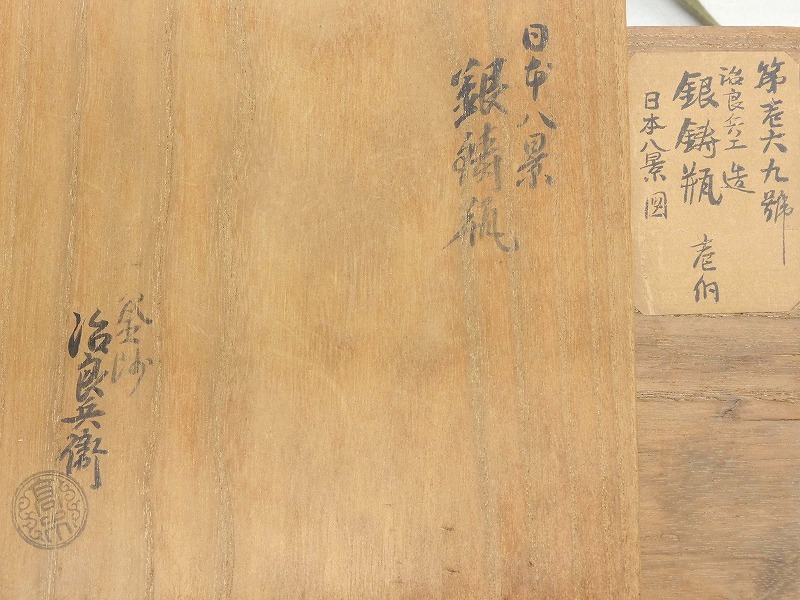 第壱六九號
治良兵工造
銀鋳瓶 壱個
日本八景図
日本八景
銀鋳瓶
治良兵衛